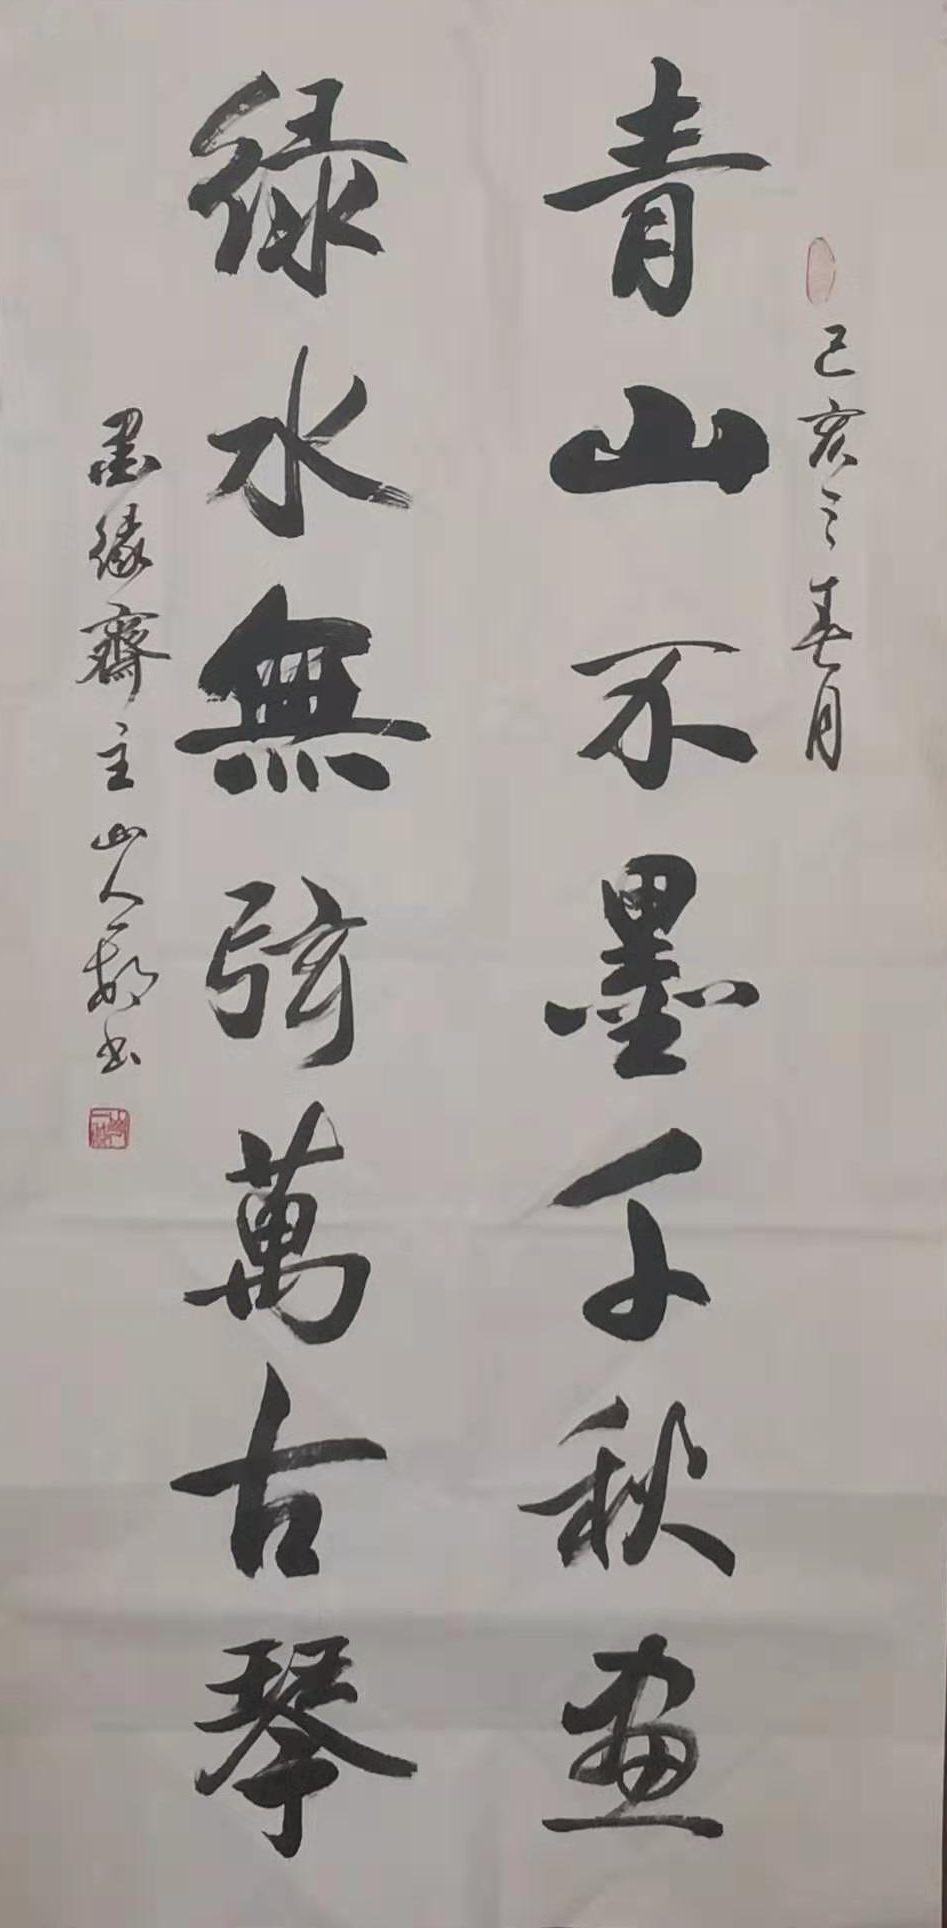 己亥之春月
青山不墨千秋畫
綠水無弦萬古琴
墨緣齋主山人一毅书